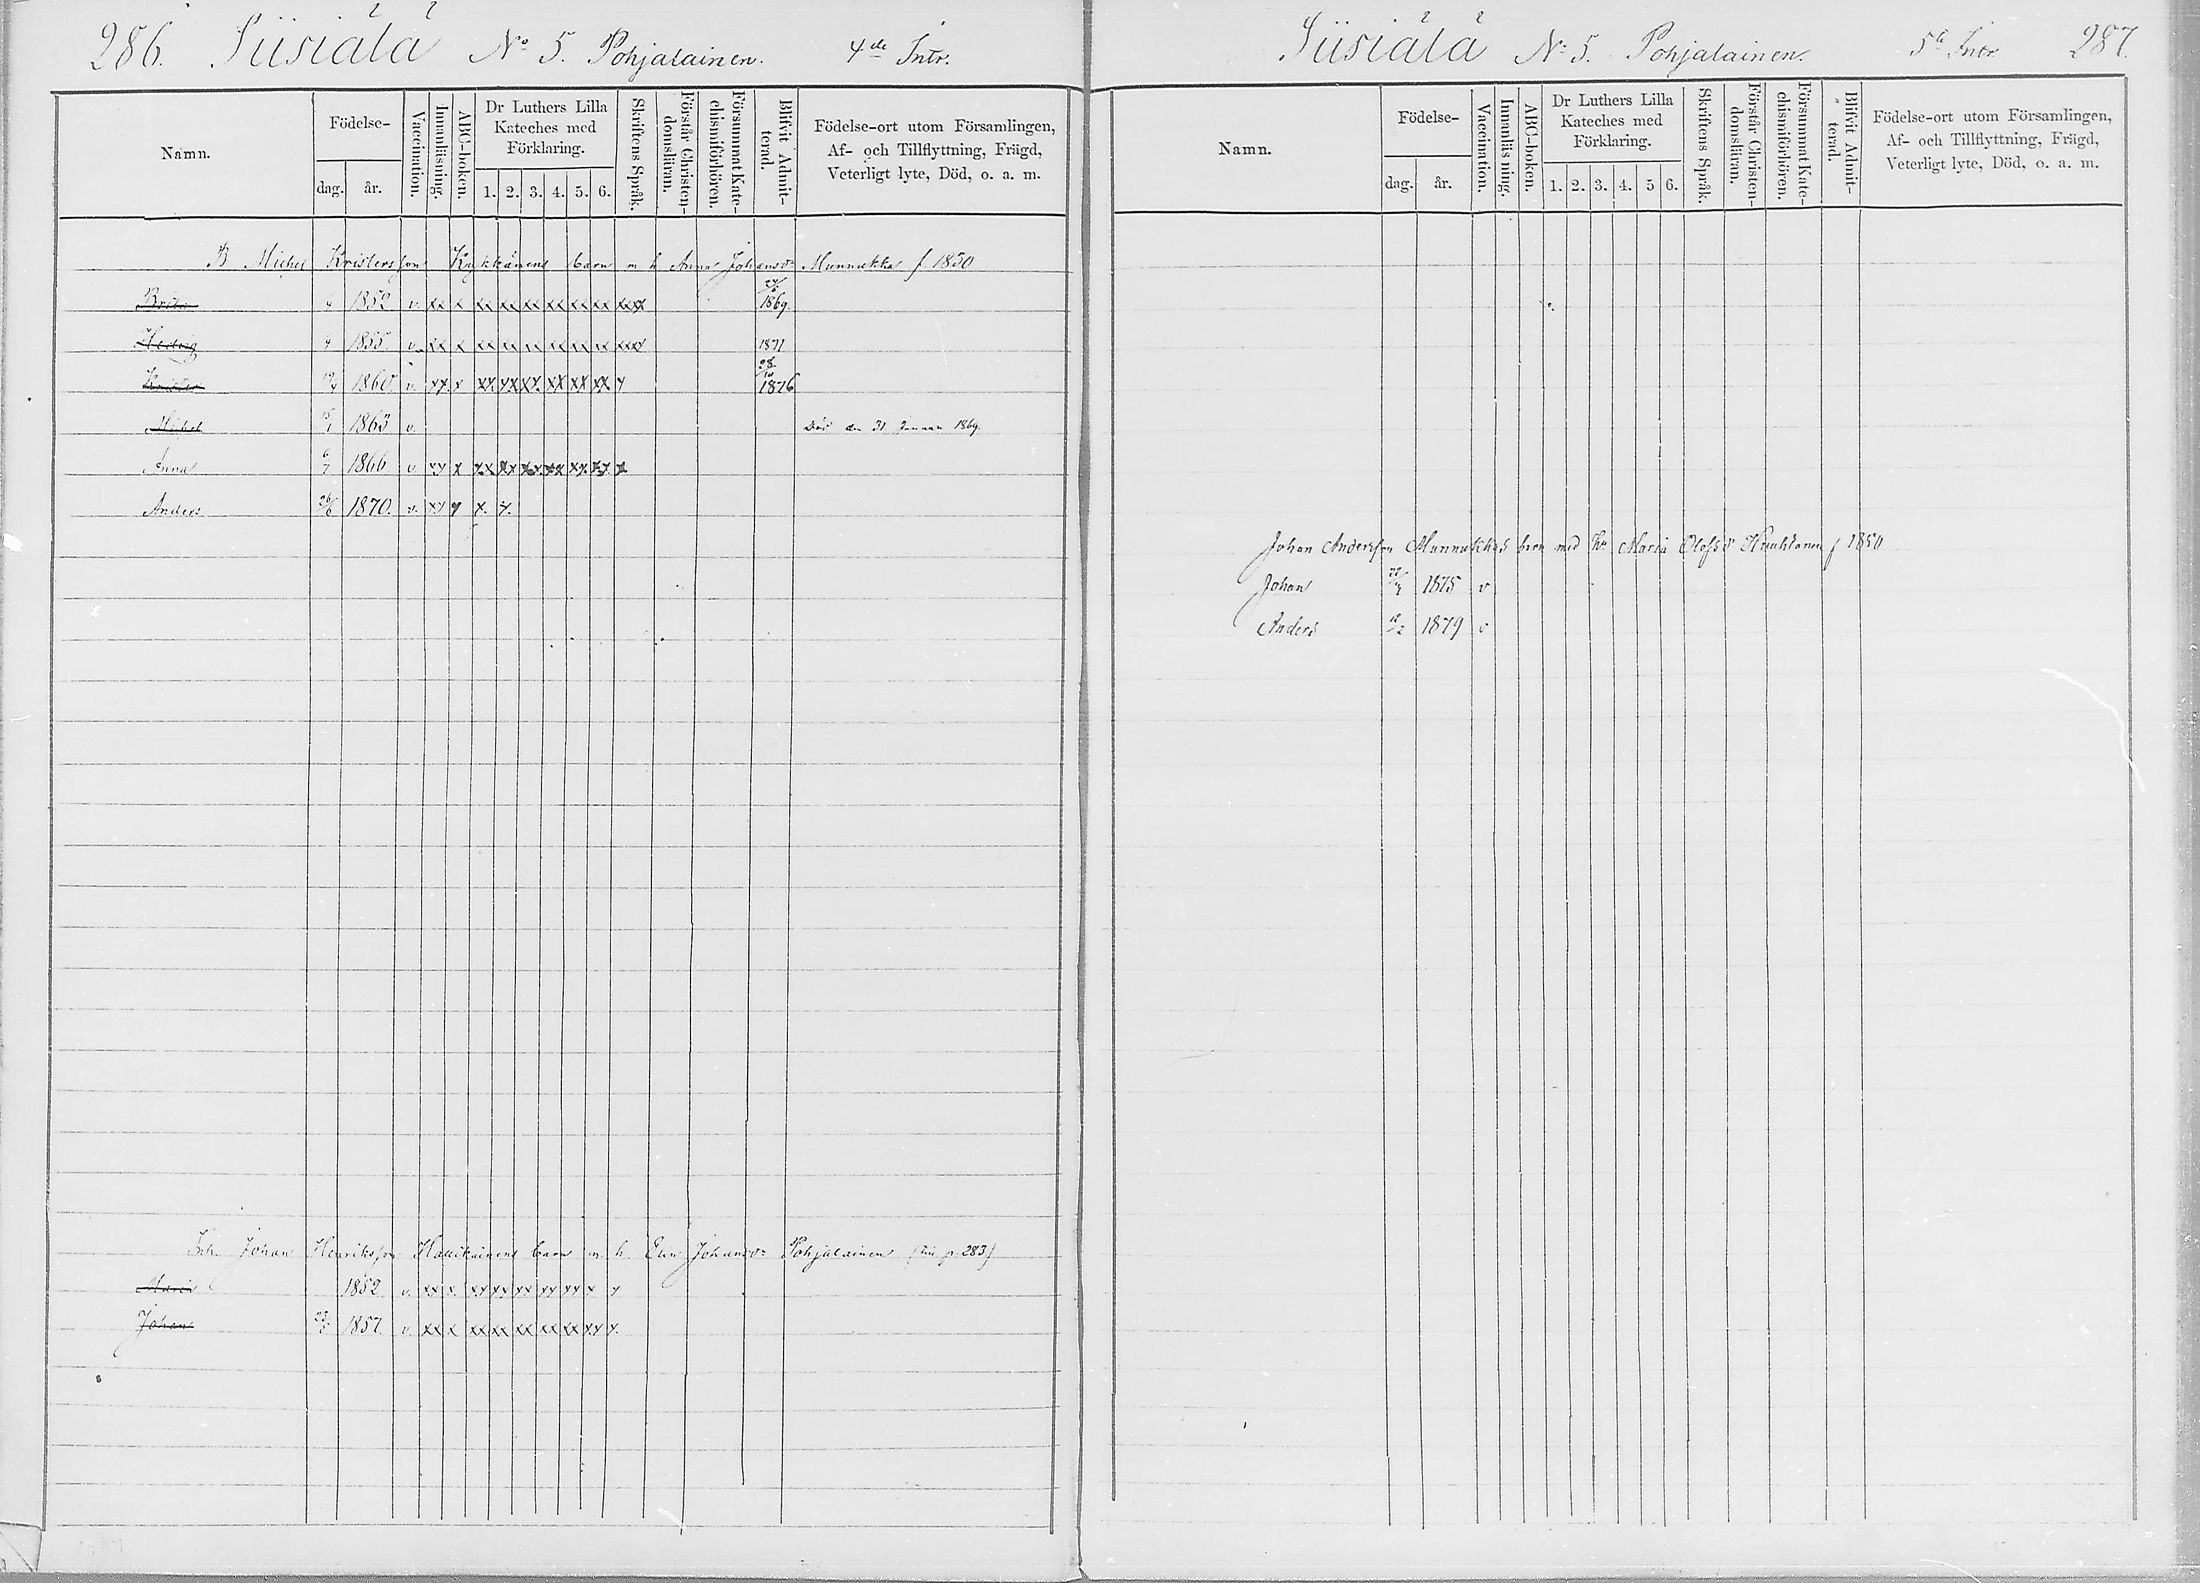 286. Siisiälä No 5. Pohjalainen. 4de Intr.
Namn. Födelse- dag. år. Vaccination. Innanläsning. ABC-boken. Dr Luthers Lilla Kateches med Förklaring. 1. 2. 3. 4. 5. 6. Skriftens Språk. Förstår Christendomsläran. Försummat Katechismiförhören. Blifvit Admitterad. Födelse-ort utom Församlingen, Af- och Tillflyttning, Frägd, Veterligt lyte, Död, o. a. m.
B Michel Kristersson Kykkänens barn m h Anna Johansdr Munnukka f 1830
Brita 1852 v. xx x xx xx xx xx xx xx xxx 1869.
Hedvig 1855 v. xx x xx xx xx xx xx xx xxx 1871
Krister 1860 v. xx x xx xx xx xx xx xx x 1876
Michel 15/1 1863 v. Död den 31 Januari 1869.
Anna 6/7 1866 v xx x xx xx xx xx xx xx x
Anders 26/6 1870. v. xx x x. x.
Inh Johan Henriksson Haukkainens barn m h. Eva Johansdr Pohjalainen p. 283)
Maria 1852 v. xx x. xx xx xx xx xx x x
Johan 1857 v. xx x xx xx xx xx xx xx x.
Siisiälä No 5. Pohjalainen. 5te Intr. 287.
Namn. Födelse- dag. år. Vaccination. Innanläsning. ABC-boken. Dr Luthers Lilla Kateches med Förklaring. 1. 2. 3. 4. 5 6. Skriftens Språk. Förstår Christendomsläran. Försummat Katechismiförhören. Blifvit Admitterad. Födelse-ort utom Församlingen, Af- och Tillflyttning, Frägd, Veterligt lyte, Död, o. a. m.
Johan Andersson Munnukkas barn med hu Maria Olofsdr f 1850
Johan 1875 v
Anders 1879 v